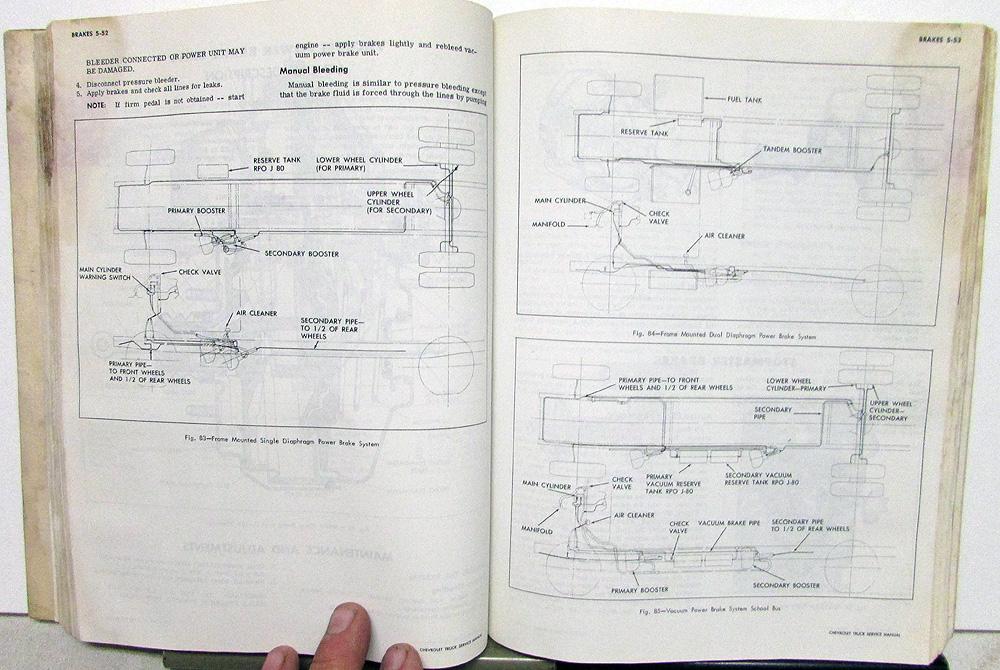 BRAKES 5-52
BLEEDER CONNECTED OR POWER UNIT MAY
BE DAMAGED.
4. Disconnect pressure bleeder.
5. Apply brakes and check all lines for leaks.
NOTE: If firm pedal is not obtained -- start
engine -- apply brakes lightly and rebleed vac-
uum power brake unit.
Manual Bleeding
Manual bleeding is similar to pressure bleeding except
that the brake fluid is forced through the lines by pumping
RESERVE TANK
RPO J 80
LOWER WHEEL CYLINDER
(FOR PRIMARY)
UPPER WHEEL
CYLINDER
(FOR SECONDARY)
PRIMARY BOOSTER
SECONDARY BOOSTER
MAIN CYLINDER
WARNING SWITCH
CHECK VALVE
AIR CLEANER
SECONDARY PIPE—
TO 1/2 OF REAR
WHEELS
PRIMARY PIPE—
TO FRONT WHEELS
AND 1/2 OF REAR WHEELS
Fig. 83—Frame Mounted Single Diaphragm Power Brake System
CHEVROLET TRUCK SERVICE MANUAL
BRAKES 5-53
FUEL TANK
RESERVE TANK
TANDEM BOOSTER
MAIN CYLINDER
MANIFOLD
CHECK
VALVE
AIR CLEANER
Fig. 84—Frame Mounted Dual Diaphragm Power Brake System
PRIMARY PIPE—TO FRONT
WHEELS AND 1/2 OF REAR WHEELS
LOWER WHEEL
CYLINDER—PRIMARY
SECONDARY
PIPE
UPPER WHEEL
CYLINDER—
SECONDARY
PRIMARY
VACUUM RESERVE
TANK RPO J-80
SECONDARY VACUUM
RESERVE TANK RPO J-80
MAIN CYLINDER
CHECK
VALVE
AIR CLEANER
MANIFOLD
CHECK
VALVE
VACUUM BRAKE PIPE
SECONDARY PIPE
TO 1/2 OF REAR WHEELS
PRIMARY BOOSTER
SECONDARY BOOSTER
Fig. 85—Vacuum Power Brake System School Bus
CHEVROLET TRUCK SERVICE MANUAL